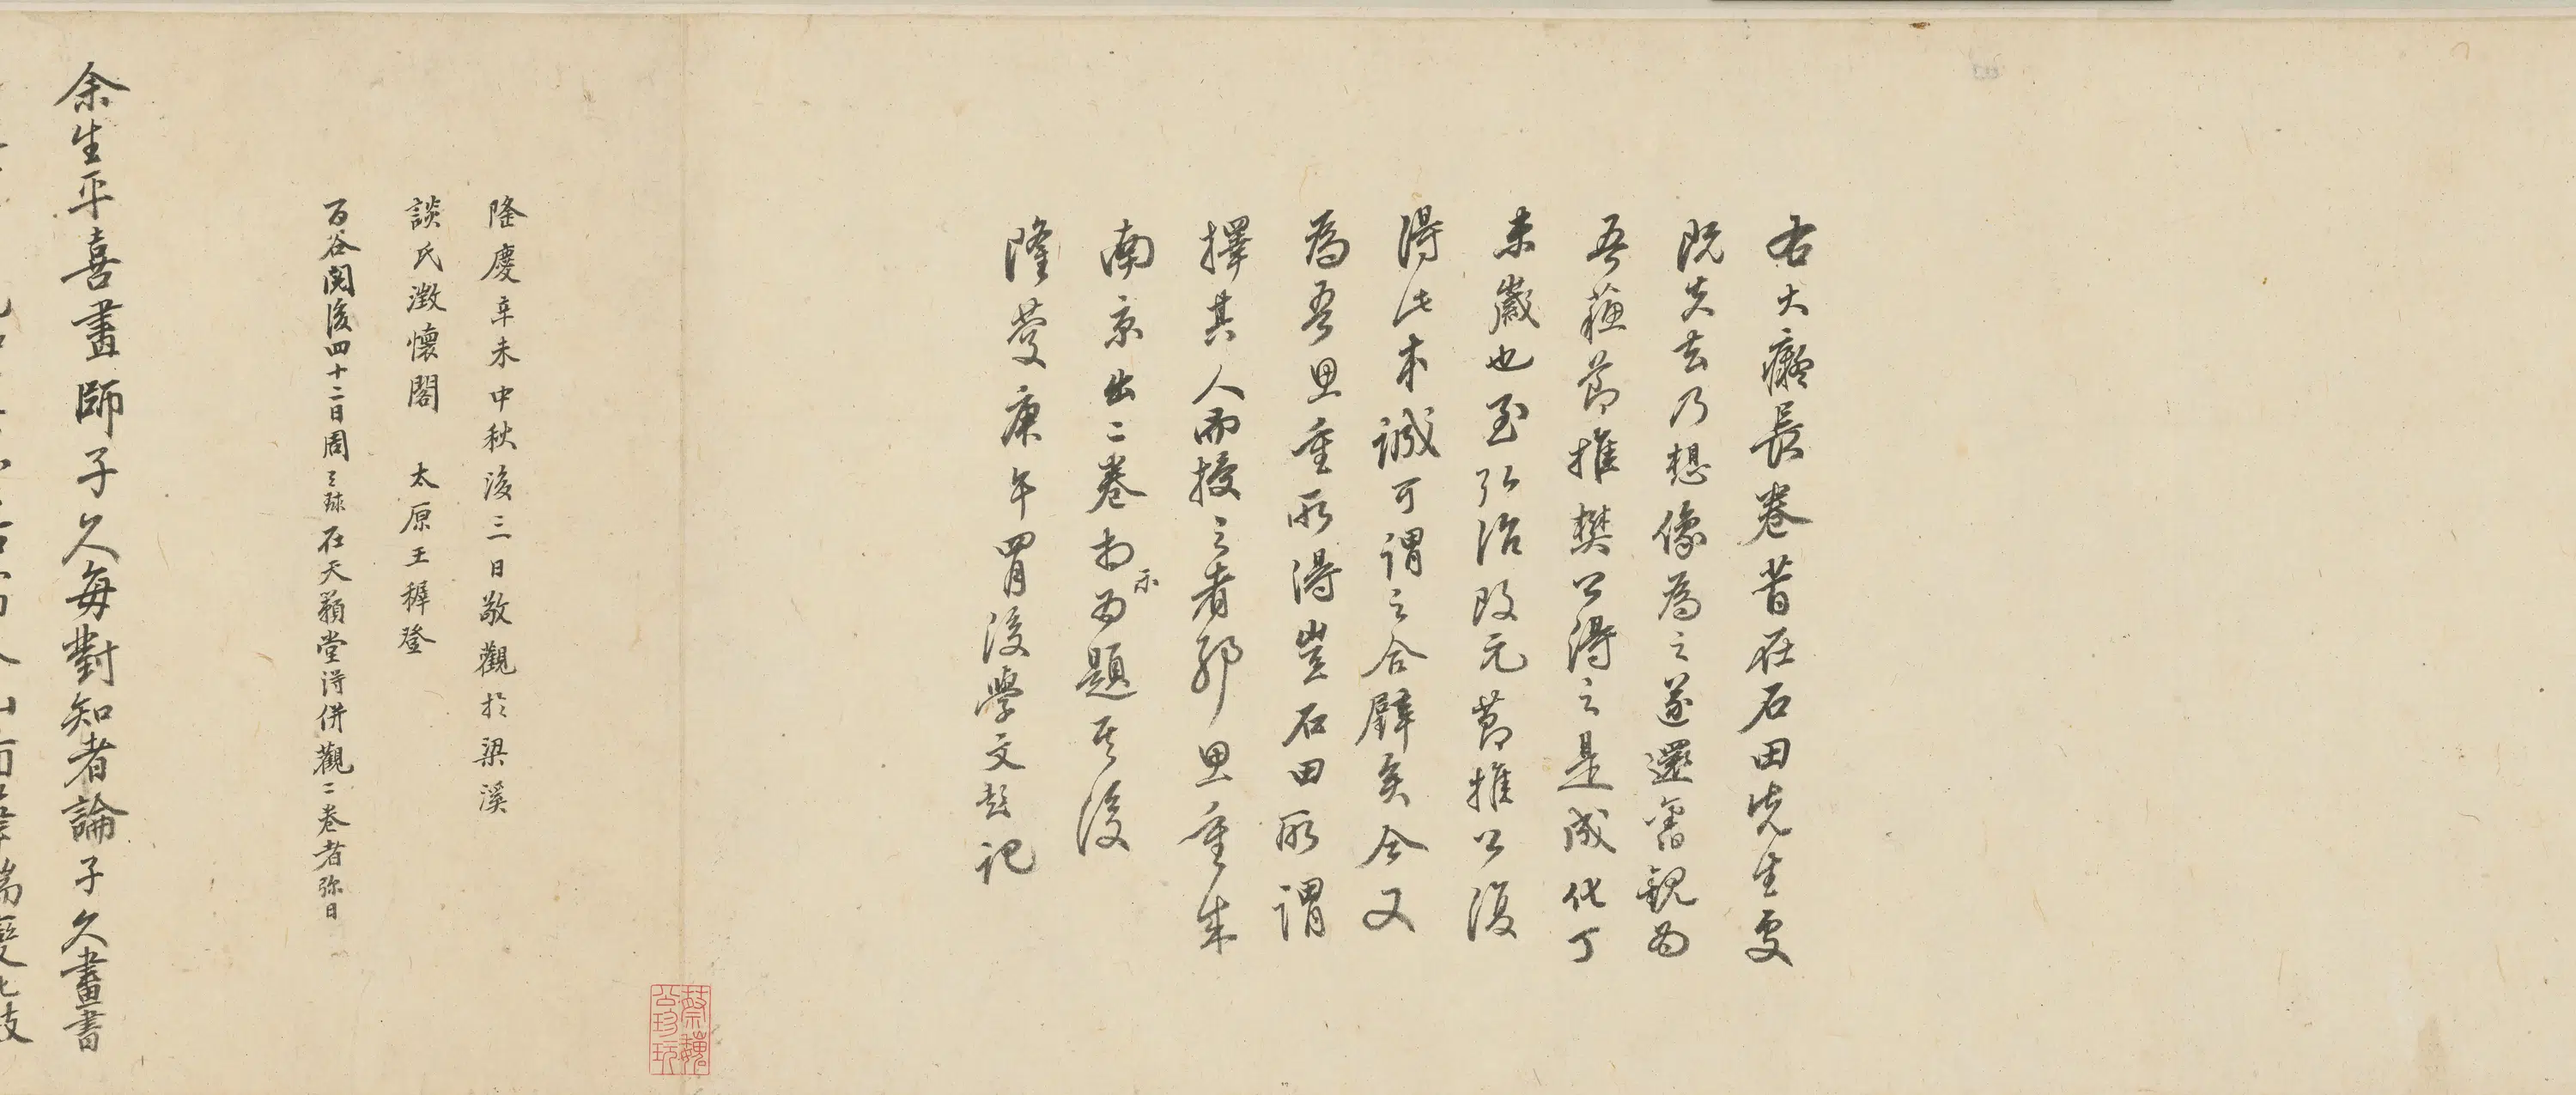 右大癡長卷昔在石田先生處
既失去乃想像為之遂還舊觀為
吾蘇節推樊公得之是成化丁
未歲也至弘治改元節推公復
得此本誠可謂之合璧矣今又
為吾思重所得豈石田所謂
擇其人而授之者耶思重來
南京出二卷相示為題其後
隆慶庚午四月後學文彭記
隆慶辛未中秋後三日敬觀於梁溪
談氏澂懷閣 太原王穉登
百谷閱後四十二日周天球在天籟堂得併觀二卷者彌日
蔡魏公珍玩
余生平喜畫師子久每對知者論子久畫書